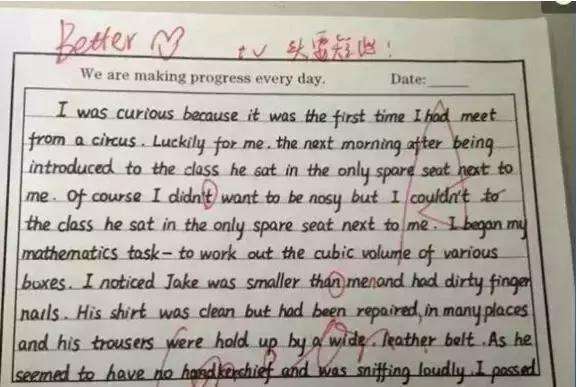 Better
t v 头要短些!
We are making progress every day. Date:
I was curious because it was the first time I had meet
from a circus. Luckily for me. the next morning after being
introduced to the class he sat in the only spare seat next to
me. Of course I didn't want to be nosy but I couldn't to
the class he sat in the only spare seat next to me. I began my
mathematics task- to work out the cubic volume of various
boxes. I noticed Jake was smaller than menand had dirty finger
nails. His shirt was clean but had been repaired, in many places
and his trousers were hold up by a wide, leather belt. As he
seemed to have no handkerchief and was sniffing loudly. I passed